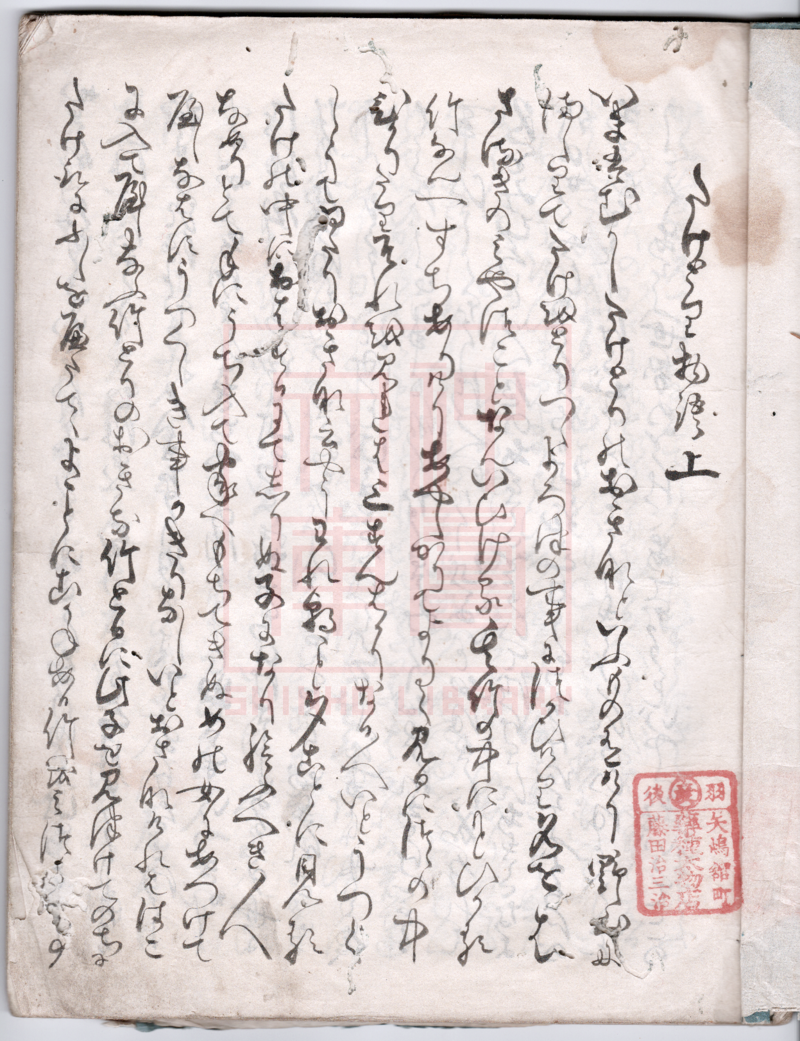 たけとり物語 上
いまはむかしたけとりのおきなといふもの有けり野山に
ましりてたけをとりつゝよろつの事につかひけり名をは
さるきのみやつことなんいひける其竹の中にもとひかる
竹なん一すちありけりあやしかりてよりて見るにつゝの中
ひかりたりそれを見れは三すんはかりなる人いとうつく
しうてゐたりおきな云やうわれ朝こと夕ことに見る
たけの中におはするにてしりぬ子になり給へき人
なめりとて手にうち入て家へもちてきぬめの女にあつけて
やしなはすうつくしき事かきりなしいとおさなけれははこ
に入てやしなふ竹とりのおきな竹とるに此子を見つけてのちに
たけとるにふしをへたてゝよことにこかねある竹をみつ
羽後
矢嶋舘町
藤田治三治
SHINKO LIBRARY